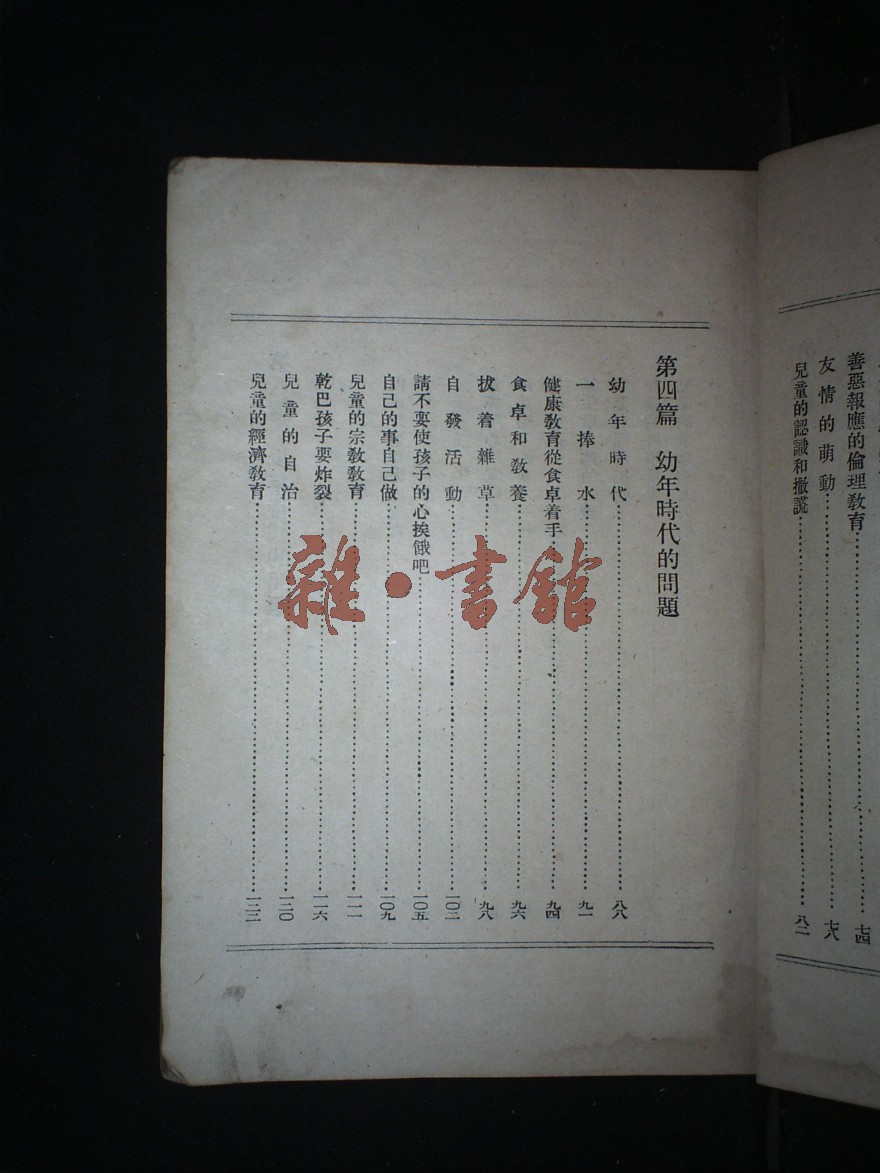 善惡報應的倫理教育……七四
友情的萌動……七八
兒童的認識和撒謊……八二
第四篇　幼年時代的問題
幼年時代……八八
一捧水……九一
健康教育從食卓着手……九四
食卓和教養……九六
拔着雜草……九八
自發活動……一〇二
請不要使孩子的心挨餓吧……一〇五
自己的事自己做……一〇九
兒童的宗教教育……一一一
乾巴孩子要炸裂……一一六
兒童的自治……一二〇
兒童的經濟教育……一二二
雜·書館